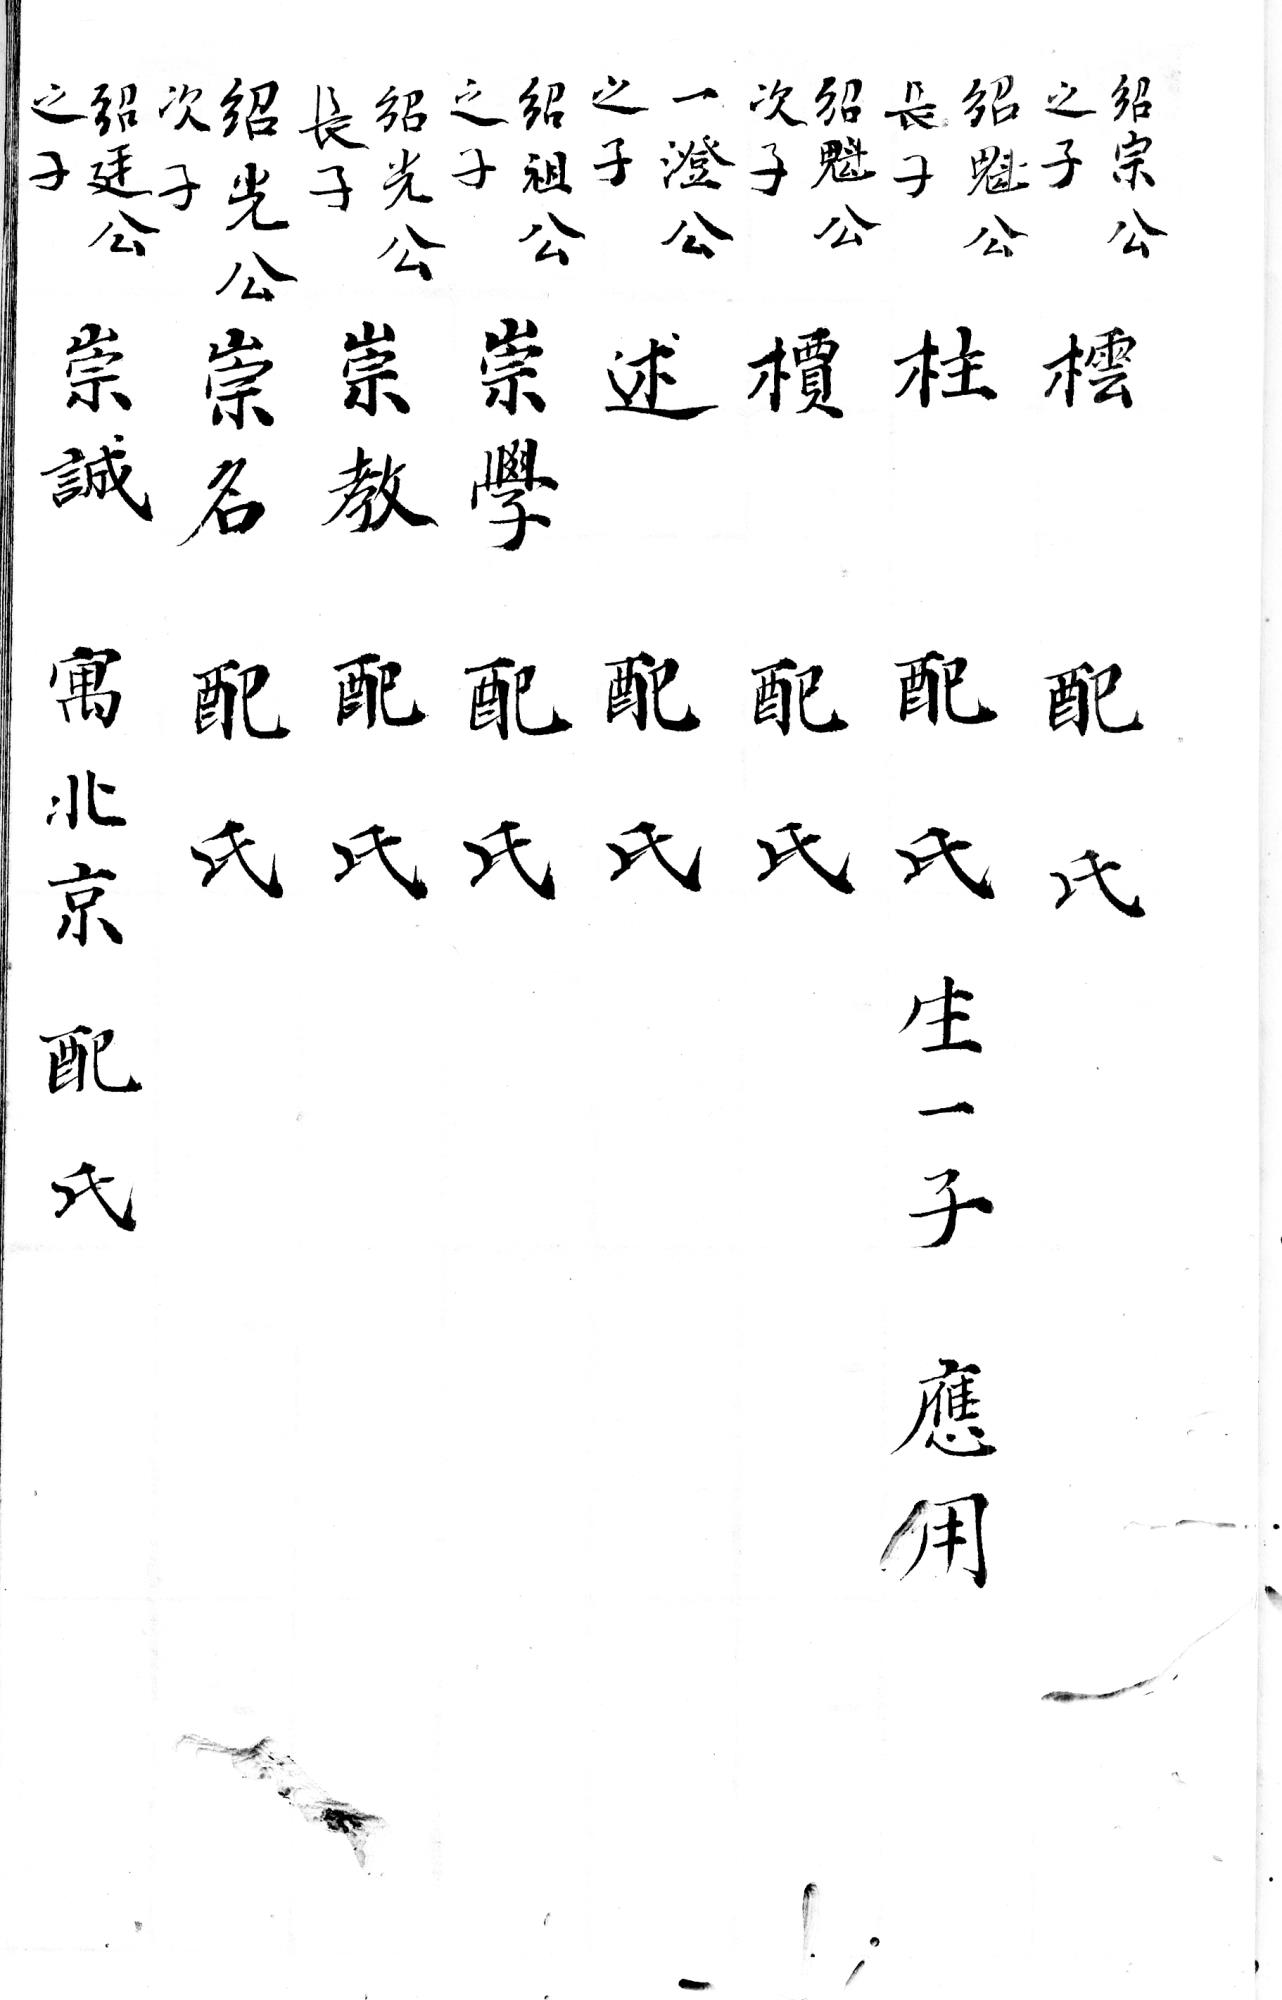 紹宗公之子 橒 配 氏
紹魁公長子 柱 配 氏 生一子 應用
紹魁公次子 檟 配 氏
一澄公之子 述 配 氏
紹祖公之子 崇學 配 氏
紹光公長子 崇教 配 氏
紹光公次子 崇名 配 氏
紹廷公之子 崇誠 寓北京 配 氏